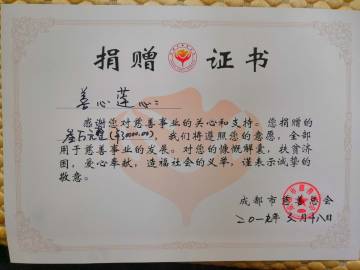 捐赠证书
善心莲心：
感谢您对慈善事业的关心和支持。您捐赠的
（¥30000.00），我们将遵照您的意愿，全部
用于慈善事业的发展。对您的慷慨解囊，扶贫济
困，爱心奉献，造福社会的义举，谨表示诚挚的
敬意。
成都市慈善总会
二〇一九年 月十八日